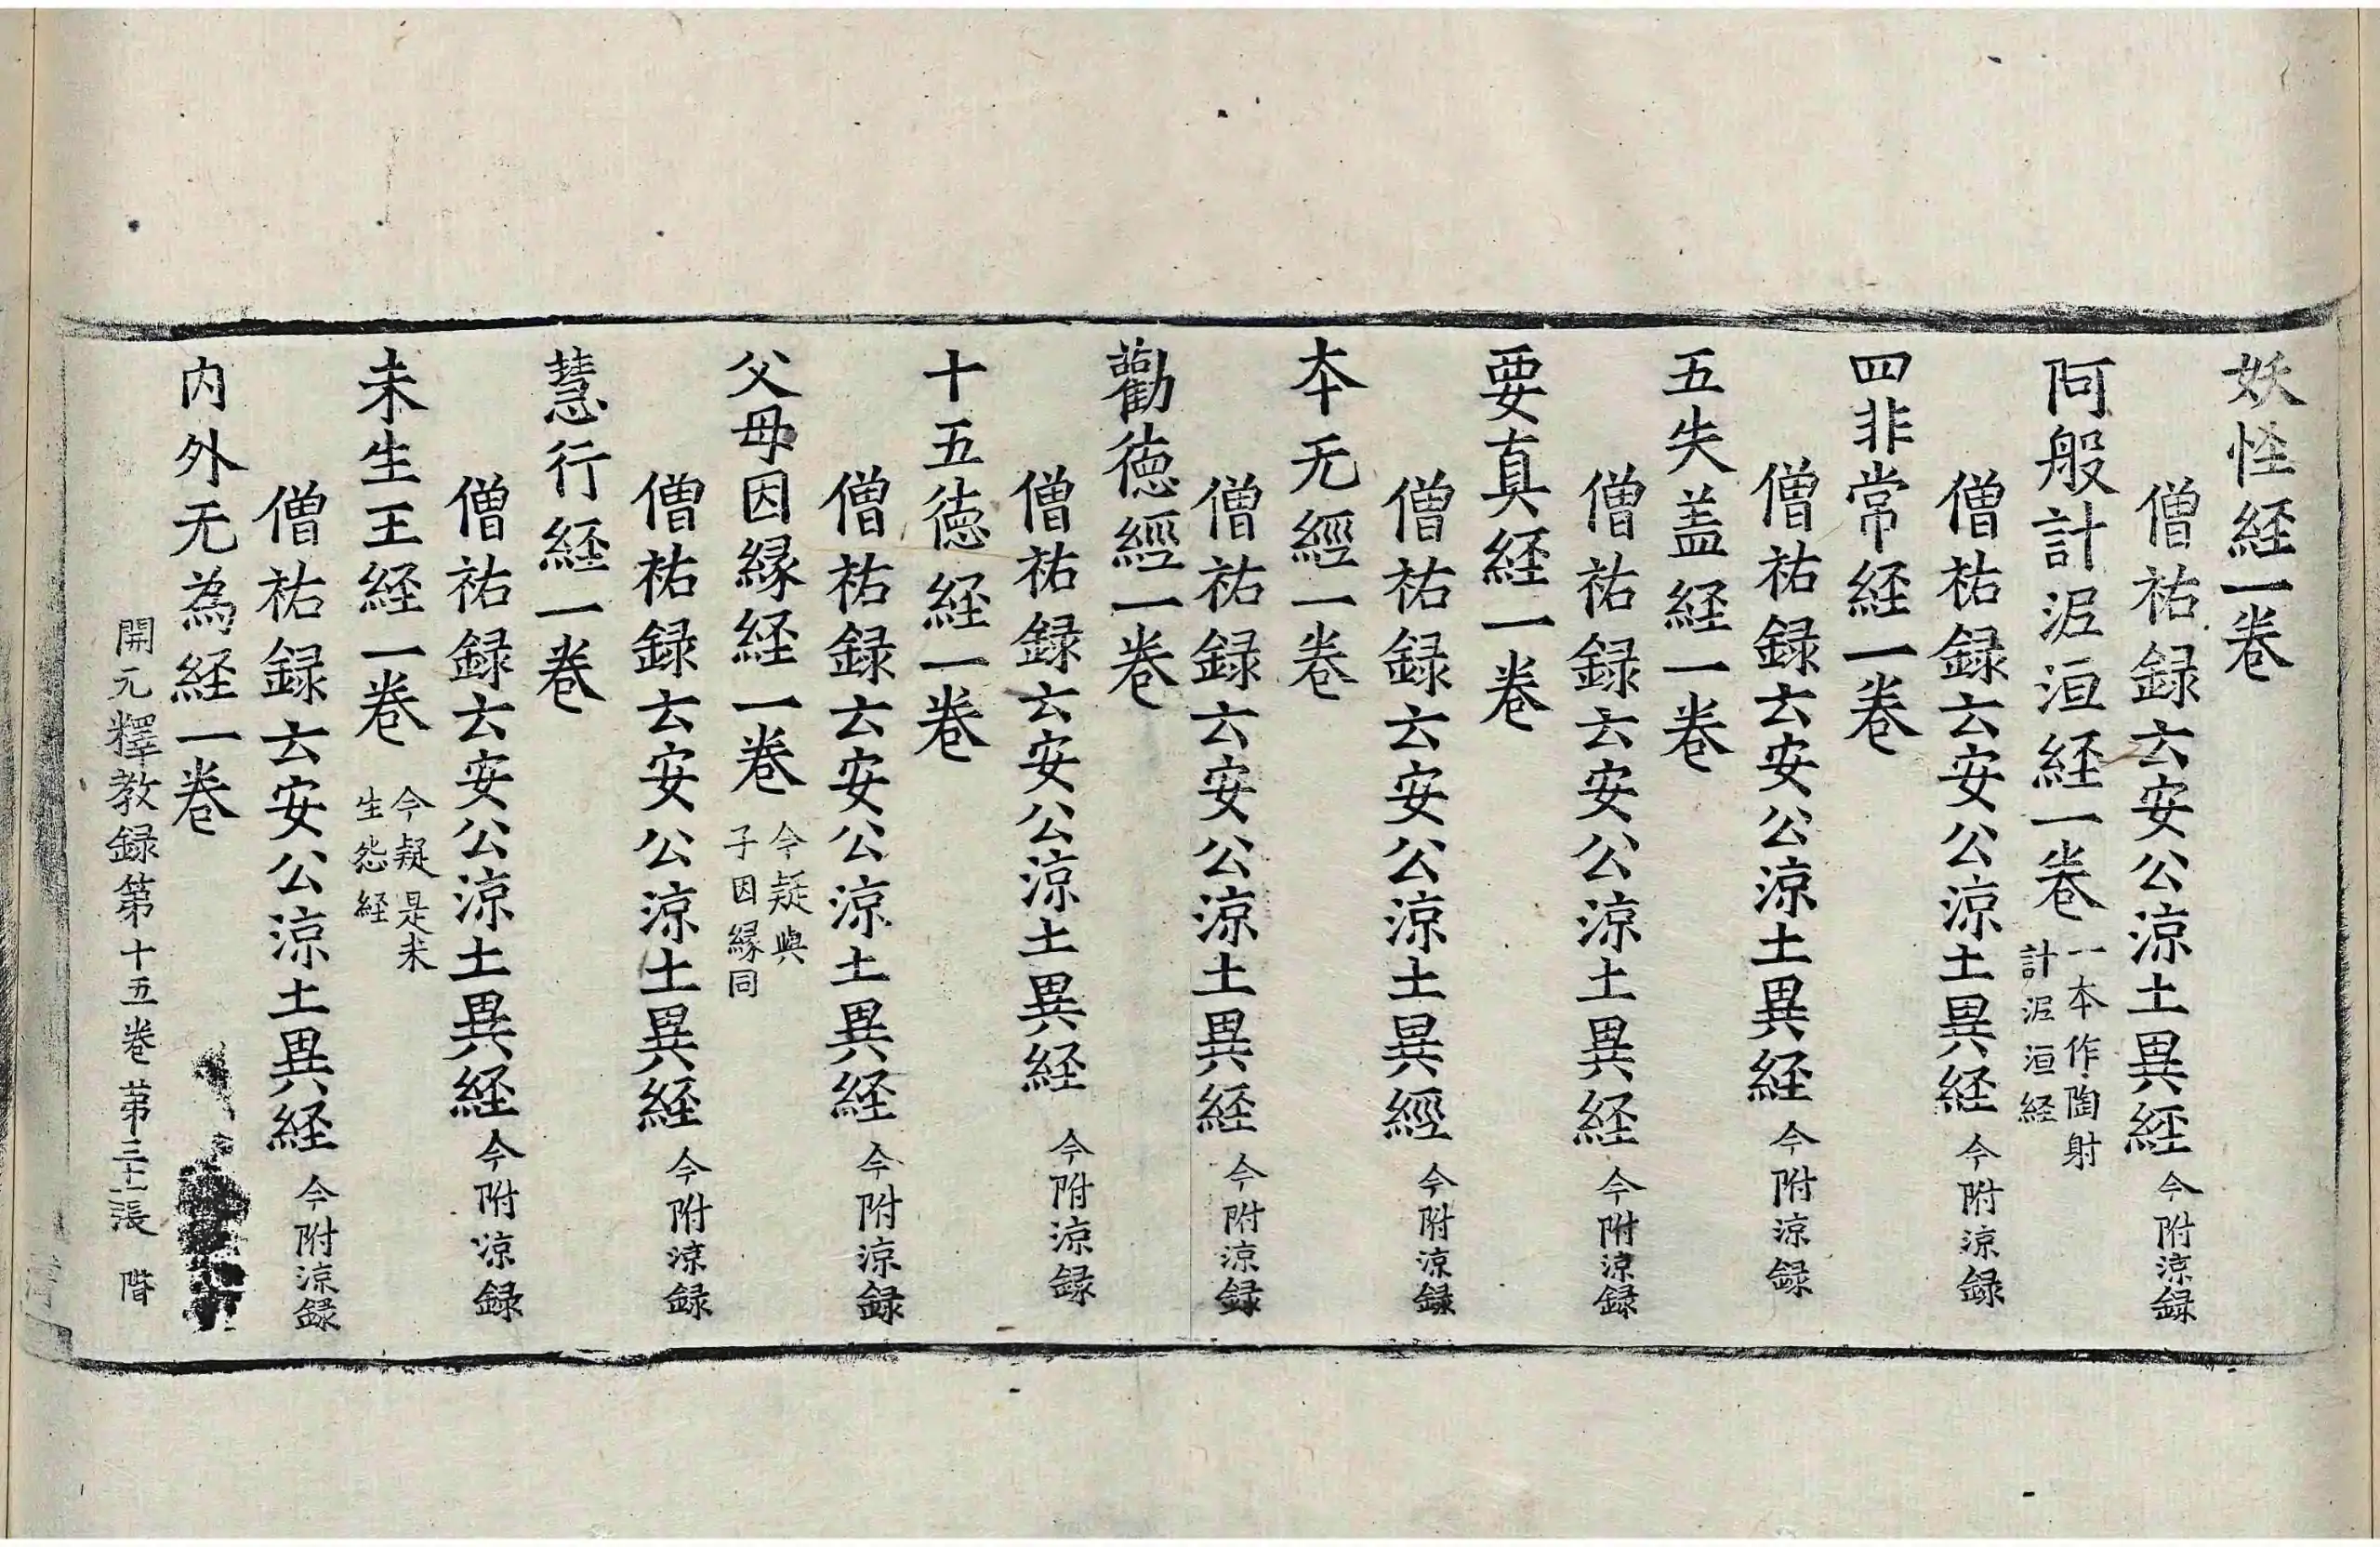 妖怪経一卷
僧祐録云安公涼土異経今附涼録
阿般計泥洹経一卷一本作陶射計泥洹経
僧祐録云安公涼土異経今附涼録
四非常経一卷
僧祐録云安公涼土異経今附涼録
五失盖経一卷
僧祐録云安公涼土異経今附涼録
要真経一卷
僧祐録云安公涼土異經今附涼録
本无經一卷
僧祐録云安公涼土異経今附涼録
勸徳經一卷
僧祐録云安公涼土異経今附涼録
十五徳経一卷
僧祐録云安公涼土異経今附涼録
父母因縁経一卷今疑與子因縁同
僧祐録云安公涼土異経今附涼録
慧行経一卷
僧祐録云安公涼土異経今附涼録
未生王経一卷今疑是未生怨経
僧祐録云安公涼土異経今附涼録
内外无為経一卷
開元釋教録第十五卷 第三十一張 階